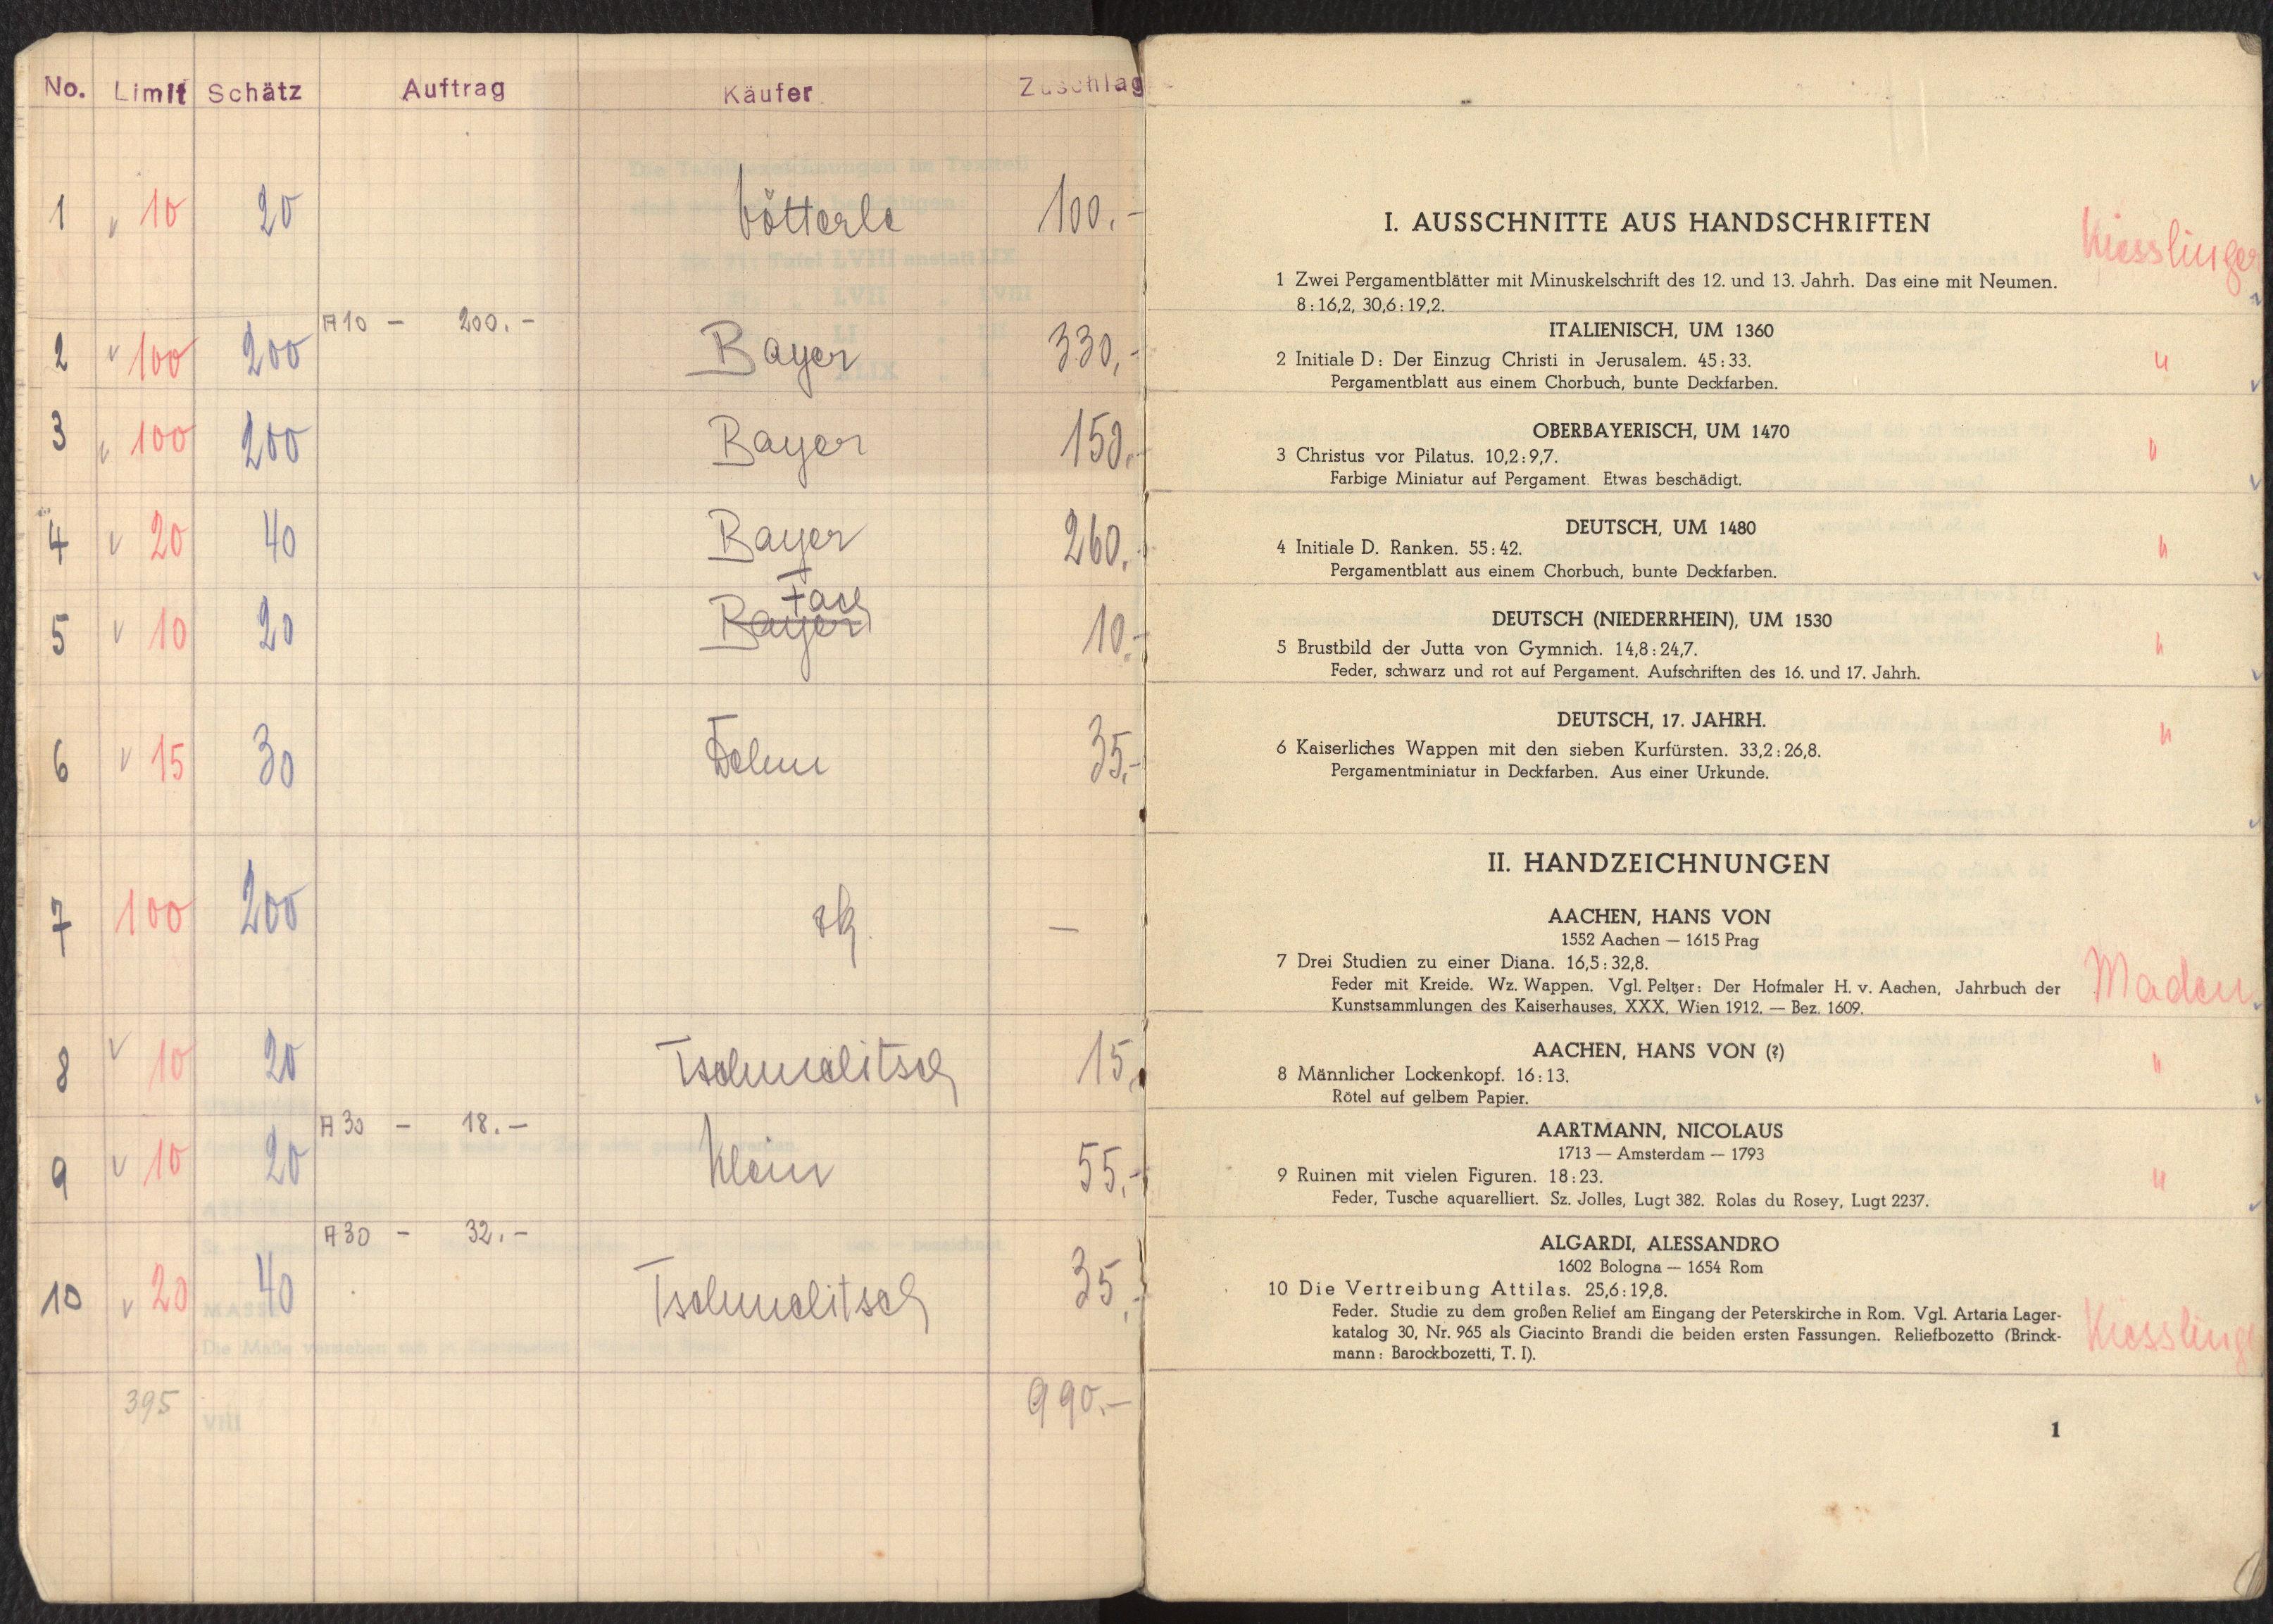 No. Limit Schätz Auftrag Käufer Zuschlag
1 v 10 20 100.-
A10 - 200.-
2 v 100 200 Bayer 330,-
3 v 100 200 Bayer 150.-
4 v 20 40 Bayer 260.-
5 v 10 20 Bayer 10.-
6 v 15 30 35.-
7 100 200 —
8 v 10 20 15,
A30 - 18.-
9 v 10 20 Klein 55.-
A30 - 32.-
10 v 20 40 35.-
395 990.-
I. AUSSCHNITTE AUS HANDSCHRIFTEN
Kiesslinger
1 Zwei Pergamentblätter mit Minuskelschrift des 12. und 13. Jahrh. Das eine mit Neumen.
8:16,2, 30,6:19,2.
ITALIENISCH, UM 1360
2 Initiale D: Der Einzug Christi in Jerusalem. 45:33. "
Pergamentblatt aus einem Chorbuch, bunte Deckfarben.
OBERBAYERISCH, UM 1470
3 Christus vor Pilatus. 10,2:9,7. "
Farbige Miniatur auf Pergament. Etwas beschädigt.
DEUTSCH, UM 1480
4 Initiale D. Ranken. 55:42. "
Pergamentblatt aus einem Chorbuch, bunte Deckfarben.
DEUTSCH (NIEDERRHEIN), UM 1530
5 Brustbild der Jutta von Gymnich. 14,8:24,7. "
Feder, schwarz und rot auf Pergament. Aufschriften des 16. und 17. Jahrh.
DEUTSCH, 17. JAHRH.
6 Kaiserliches Wappen mit den sieben Kurfürsten. 33,2:26,8. "
Pergamentminiatur in Deckfarben. Aus einer Urkunde.
II. HANDZEICHNUNGEN
AACHEN, HANS VON
1552 Aachen — 1615 Prag
7 Drei Studien zu einer Diana. 16,5:32,8.
Feder mit Kreide. Wz. Wappen. Vgl. Peltzer: Der Hofmaler H. v. Aachen, Jahrbuch der
Kunstsammlungen des Kaiserhauses, XXX, Wien 1912. — Bez. 1609.
AACHEN, HANS VON (?)
8 Männlicher Lockenkopf. 16:13. "
Rötel auf gelbem Papier.
AARTMANN, NICOLAUS
1713 — Amsterdam — 1793
9 Ruinen mit vielen Figuren. 18:23. "
Feder, Tusche aquarelliert. Sz. Jolles, Lugt 382. Rolas du Rosey, Lugt 2237.
ALGARDI, ALESSANDRO
1602 Bologna — 1654 Rom
10 Die Vertreibung Attilas. 25,6:19,8.
Feder. Studie zu dem großen Relief am Eingang der Peterskirche in Rom. Vgl. Artaria Lager-
katalog 30, Nr. 965 als Giacinto Brandi die beiden ersten Fassungen. Reliefbozetto (Brinck-
mann: Barockbozetti, T. I).
1